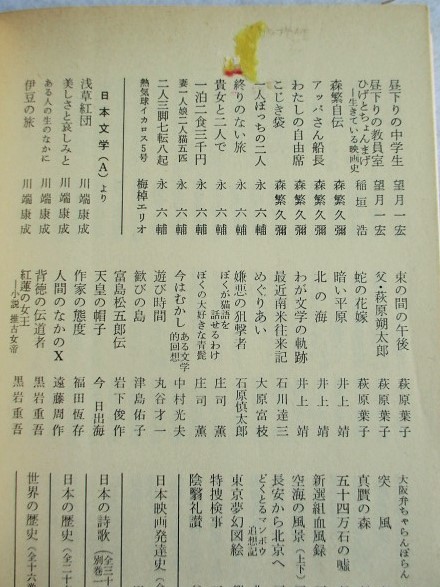 昼下りの中学生 望月一宏
昼下りの教員室 望月一宏
ひげとちょんまげ ―生きている映画史 稲垣浩
森繁自伝 森繁久彌
アッパさん船長 森繁久彌
わたしの自由席 森繁久彌
こじき袋 森繁久彌
一人ぼっちの二人 永六輔
終りのない旅 永六輔
貴女と二人で 永六輔
一泊二食三千円 永六輔
妻一人娘二人猫五匹 永六輔
二人三脚七転八起 永六輔
熱気球イカロス5号 梅棹エリオ
日本文学(A)より
浅草紅団 川端康成
美しさと哀しみと 川端康成
ある人の生のなかに 川端康成
伊豆の旅 川端康成
束の間の午後 萩原葉子
父・萩原朔太郎 萩原葉子
蛇の花嫁 萩原葉子
暗い平原 井上靖
北の海 井上靖
わが文学の軌跡 井上靖
最近南米往来記 石川達三
めぐりあい 大原富枝
嫌悪の狙撃者 石原慎太郎
ぼくが猫語を話せるわけ 庄司薫
ぼくの大好きな青髭 庄司薫
今はむかし ある文学的回想 中村光夫
遊び時間 丸谷才一
歓びの島 津島佑子
富島松五郎伝 岩下俊作
天皇の帽子 今日出海
作家の態度 福田恆存
人間のなかのX 遠藤周作
背徳の伝道者 黒岩重吾
紅蓮の女王 ―小説 推古女帝 黒岩重吾
大阪弁ちゃらんぽらん
突風
真贋の森
五十四万石の嘘
新選組血風録
空海の風景(上下)
長安から北京へ
どくとるマンボウ追想記
東京夢幻図絵
特捜検事
陰翳礼讃
日本映画発達史
日本の詩歌 全三十 別巻一
日本の歴史 (全二十
世界の歴史 (全十六